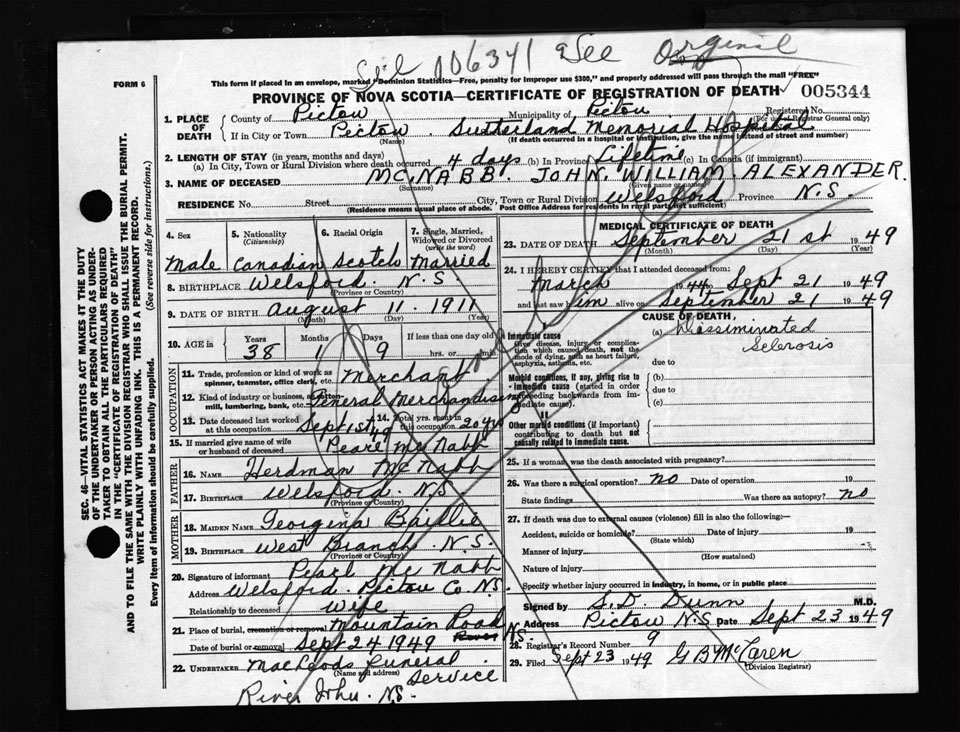 106341 See Orginil
FORM 6
This form if placed in an envelope, marked "Dominion Statistics—Free, penalty for improper use $300," and properly addressed will pass through the mail "FREE"
PROVINCE OF NOVA SCOTIA—CERTIFICATE OF REGISTRATION OF DEATH 005344
1. PLACE OF DEATH County of Pictou Municipality of Pictou Registered No.
(For use of Registrar General only)
If in City or Town Pictou. Sutherland Memorial Hospital
(Name) (If death occurred in a hospital or institution, give the name instead of street and number)
2. LENGTH OF STAY (in years, months and days)
(a) In City, Town or Rural Division where death occurred 4 days (b) In Province Lifetime (c) In Canada (if immigrant)
3. NAME OF DECEASED MCNABB. JOHN. WILLIAM. ALEXANDER.
(Surname) (Given name or names)
RESIDENCE No. Street City, Town or Rural Division Welsford Province N.S.
(Residence means usual place of abode. Post Office Address for residents in rural parts not sufficient)
4. Sex Male
5. Nationality (Citizenship) Canadian
6. Racial Origin Scotch
7. Single, Married, Widowed or Divorced (write the word) Married
8. BIRTHPLACE Welsford. N.S
(Province or Country)
9. DATE OF BIRTH August 11. 1911
(Month) (Day) (Year)
10. AGE in Years 38 Months 1 Days 9 If less than one day old hrs. or min.
OCCUPATION
11. Trade, profession or kind of work as spinner, teamster, office clerk, etc. Merchant
12. Kind of industry or business, as cotton-mill, lumbering, bank, etc. General Merchandising
13. Date deceased last worked at this occupation Sept 1st 49 14. Total yrs. spent in this occupation 20 yrs
15. If married give name of wife or husband of deceased Pearl McNabb
FATHER
16. NAME Herdman McNabb
17. BIRTHPLACE Welsford. N.S
(Province or Country)
MOTHER
18. MAIDEN NAME Georgina Baillie
19. BIRTHPLACE West Branch. N.S.
(Province or Country)
20. Signature of informant Pearl McNabb
Address Welsford. Pictou Co. N.S.
Relationship to deceased Wife
21. Place of burial, cremation or removal Mountain Road
River N.S.
Date of burial or removal Sept 24 1949
22. UNDERTAKER MacLeods Funeral Service
(Name and address)
River John. N.S.
MEDICAL CERTIFICATE OF DEATH
23. DATE OF DEATH September 21st 1949
(Month) (Day) (Year)
24. I HEREBY CERTIFY that I attended deceased from:
March 1944 to Sept 21 1949
and last saw him alive on September 21 1949
CAUSE OF DEATH
Immediate cause
Give disease, injury or complication which caused death, not the mode of dying, such as heart failure, asphyxia, asthenia, etc.
(a) Dissiminated Sclerosis
due to
Morbid conditions, if any, giving rise to immediate cause (stated in order proceeding backwards from immediate cause).
(b)
due to
(c)
Other morbid conditions (if important) contributing to death but not causally related to immediate cause.
25. If a woman was the death associated with pregnancy?
26. Was there a surgical operation? no Date of operation 19
State findings Was there an autopsy? no
27. If death was due to external causes (violence) fill in also the following:—
Accident, suicide or homicide? Date of injury 19
(State which)
Manner of injury
(How sustained)
Nature of injury
Specify whether injury occurred in industry, in home, or in public place
Signed by S.D. Dunn M.D.
Address Pictou N.S Date Sept 23 1949
28. Registrar's Record Number 9
29. Filed Sept 23 1949 G B McCaren
(Division Registrar)
SEC. 46—VITAL STATISTICS ACT MAKES IT THE DUTY
OF THE UNDERTAKER OR PERSON ACTING AS UNDER-
TAKER TO OBTAIN ALL THE PARTICULARS REQUIRED
IN THE "CERTIFICATE OF REGISTRATION OF DEATH"
AND TO FILE THE SAME WITH THE DIVISION REGISTRAR WHO SHALL ISSUE THE BURIAL PERMIT.
WRITE PLAINLY WITH UNFADING INK. THIS IS A PERMANENT RECORD.
Every item of information should be carefully supplied. (See reverse side for instructions.)